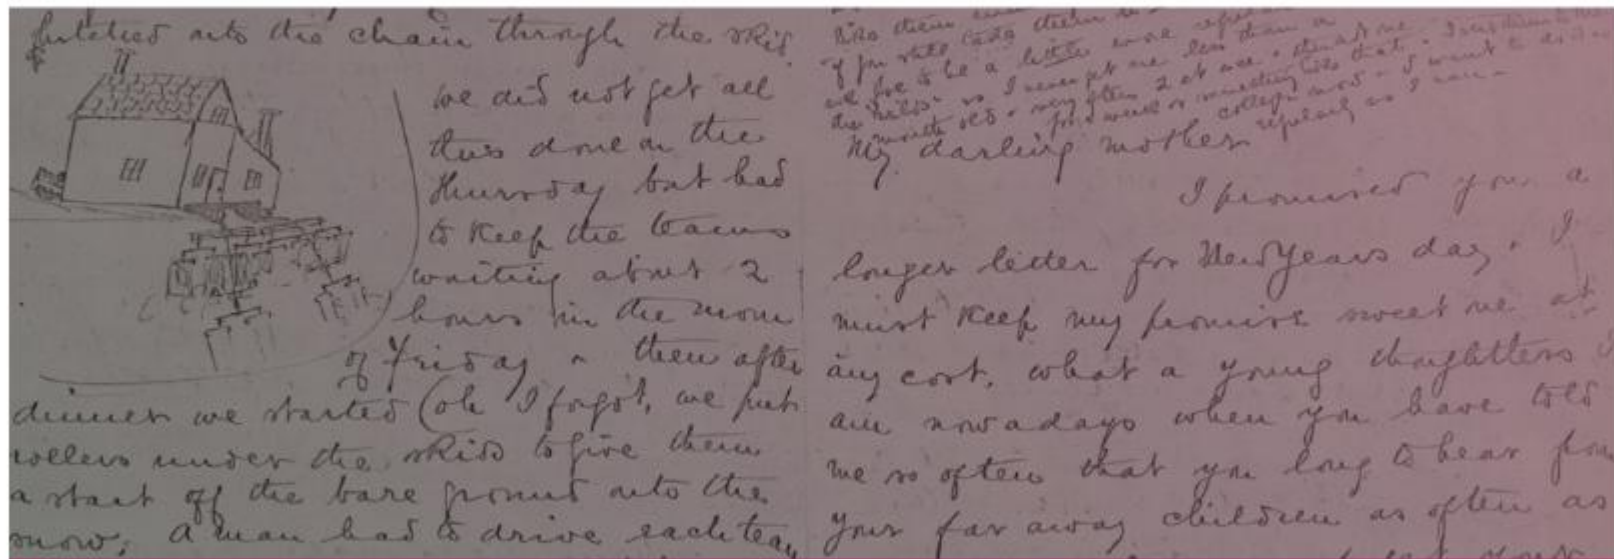 into the chain through the skid
we did not get all
this done on the
Thursday but had
to keep the teams
waiting about 2
hours in the morn
of Friday & then after
dinner we started (oh I forgot, we put
rollers under the skids to give them
a start off the bare ground onto the
snow; A man had to drive each team
like them
if you
we love to be a little more
so I never get one less than a
month old & very often 2 at once & then not one
for a week or something like that.
college now - I want to
My darling mother
I promised you a
longer letter for New Years day. I
must keep my promise sweet me at
any cost. what a young thoughtless I
am nowadays when you have told
me so often that you long to hear from
your far away children as often as